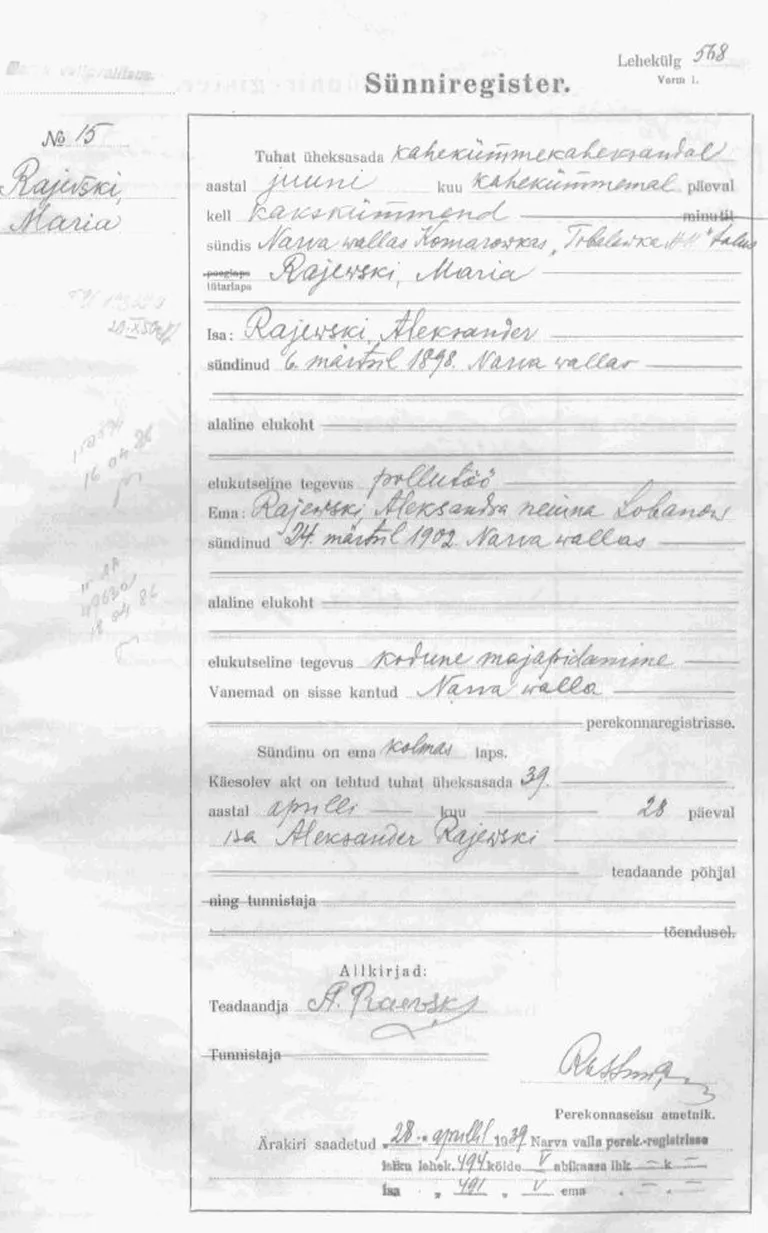 Lehekülg 568
Vorm 1.
Sünniregister.
№ 15
Rajevski,
Maria
Tuhat üheksasada kahekümmekaheksandal
aastal juuni kuu kahekümmemal päeval
kell kakskümmend minutit
sündis Narva wallas Komarowkas, talus
poeglaps
tütarlaps Rajewski, Maria
Isa: Rajewski, Aleksander
sündinud 6. märtsil 1898. Narva wallas
alaline elukoht
elukutseline tegevus põllutöö
Ema: Rajewski Aleksandra neiuna Lobanow
sündinud 24. märtsil 1902. Narva wallas
alaline elukoht
elukutseline tegevus kodune majapidamine
Vanemad on sisse kantud Narva walla
perekonnaregistrisse.
Sündinu on ema kolmas laps.
Käesolev akt on tehtud tuhat üheksasada 39.
aastal aprilli kuu 28 päeval
isa Aleksander Rajewski
teadaande põhjal
ning tunnistaja
tõendusel.
Allkirjad:
Teadaandja A. Raevsky
Tunnistaja
Perekonnaseisu ametnik.
Ärakiri saadetud „28." aprillil 1939 Narva valla perek.-registrisse
isiku lehek. 494 köide V abikaasa lhk — k —
isa „ 491 „ V ema „ — „ —